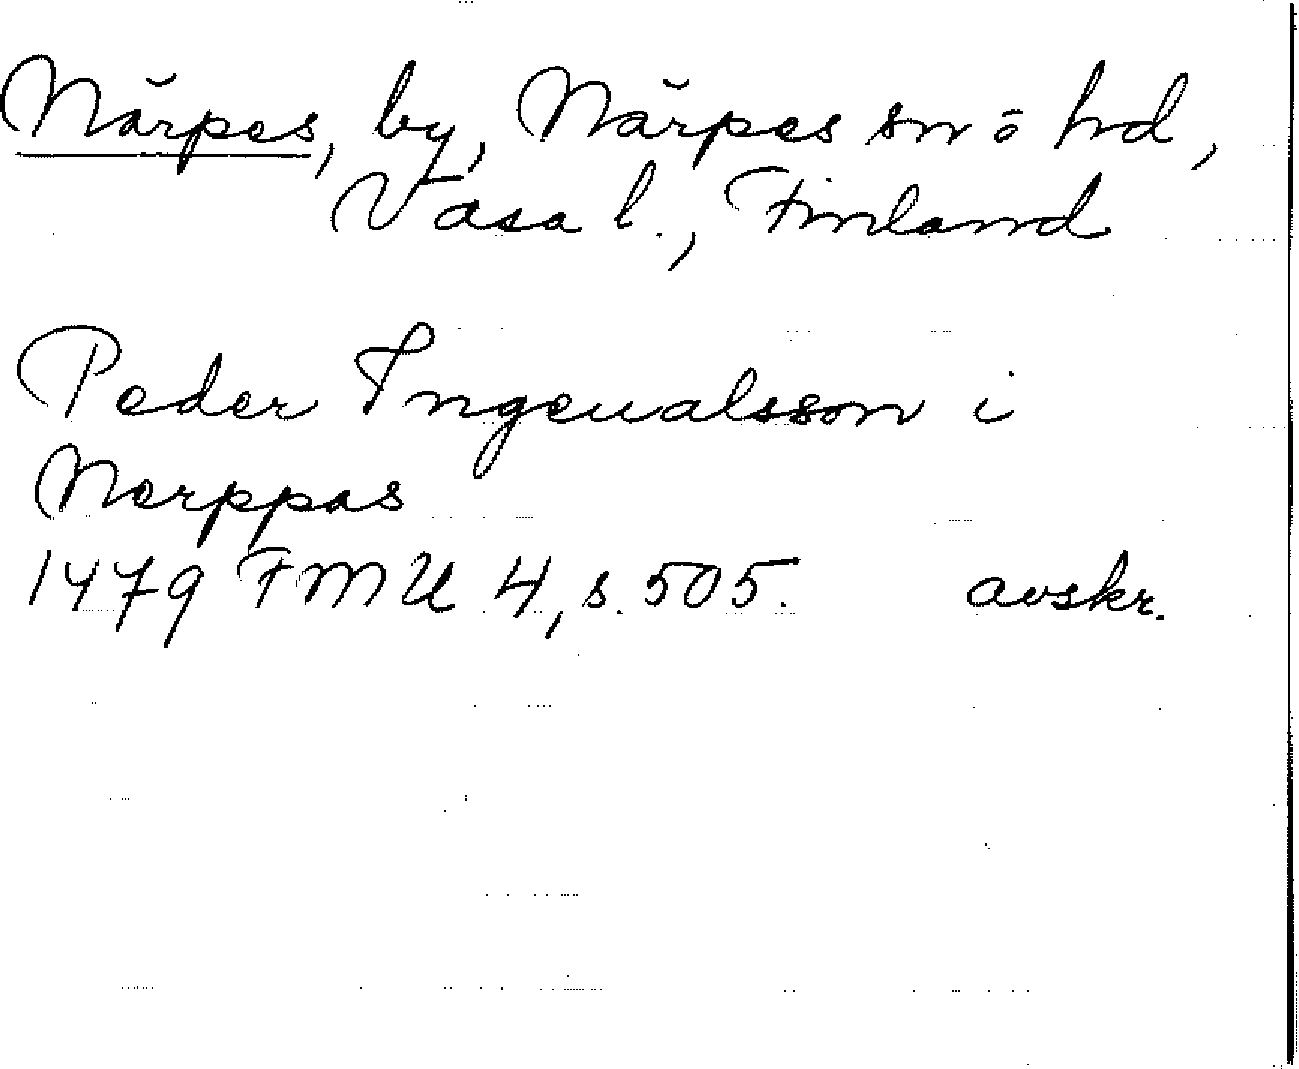 Närpes, by, Närpes sn o hd,
Vasa l., Finland
Peder Ingeualsson i
Nerppas
1479 FMU 4, s. 505. avskr.